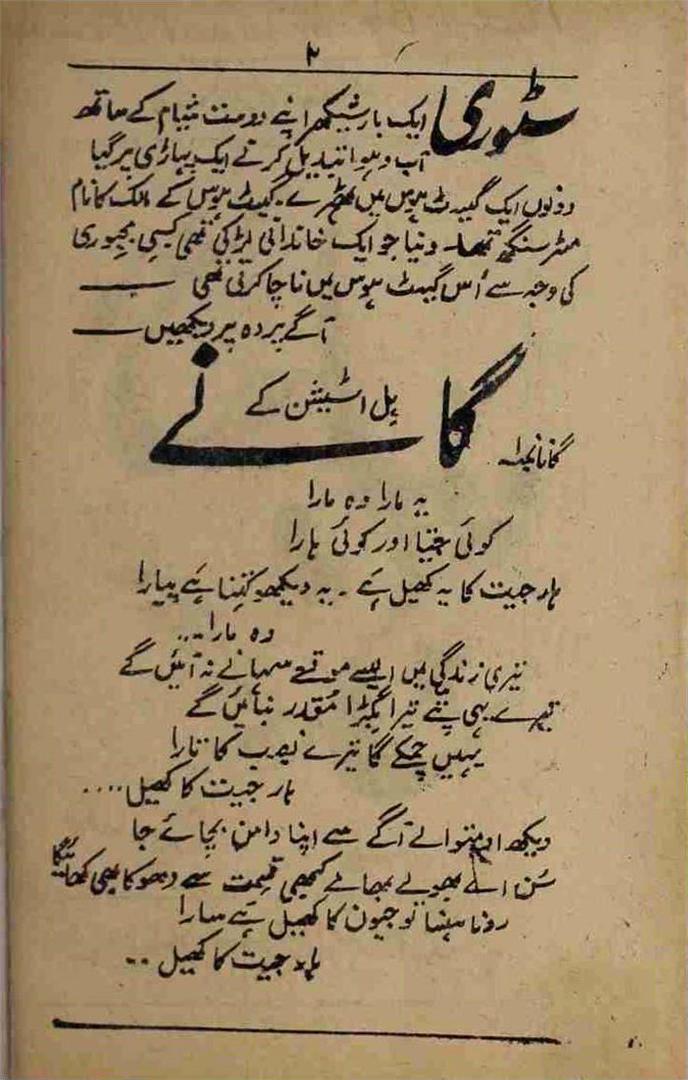 ۲
سٹوری ایک بار شیکھر اپنے دوست شیام کے ساتھ
آب و ہوا تبدیل کرنے ایک پہاڑی پر گیا
دونوں ایک گیسٹ ہوس میں ٹھہرے۔ گیسٹ ہوس کے مالک کا نام
مٹر سنگھ تھا۔ دنیا جو ایک خاندانی لڑکی تھی کسی مجبوری
کی وجہ سے اُس گیسٹ ہوس میں ناچا کرتی تھی
آگے پردہ پر دیکھیں
ہل اسٹیشن کے
گانے
گانا نمبر ۱
یہ مارا وہ مارا
کوئی جیتا اور کوئی ہارا
ہار جیت کا یہ کھیل ہے ۔ یہ دیکھو کتنا ہے پیارا
وہ مارا...
تیری زندگی میں ایسے موقعے سہانے نہ آئیں گے
تیرے ہی پتے تیرا بگڑا مُقدر بنائیں گے
یہیں چمکے گا تیرے نصیب کا تارا
ہار جیت کا کھیل ....
دیکھ او متوالے آگے سے اپنا دامن بچائے جا
سُن اے بھولے بھالے کبھی قسمت سے دھوکا بھی کھائیگا
رونا ہنسنا تو جیون کا کھیل ہے سارا
ہار جیت کا کھیل ..